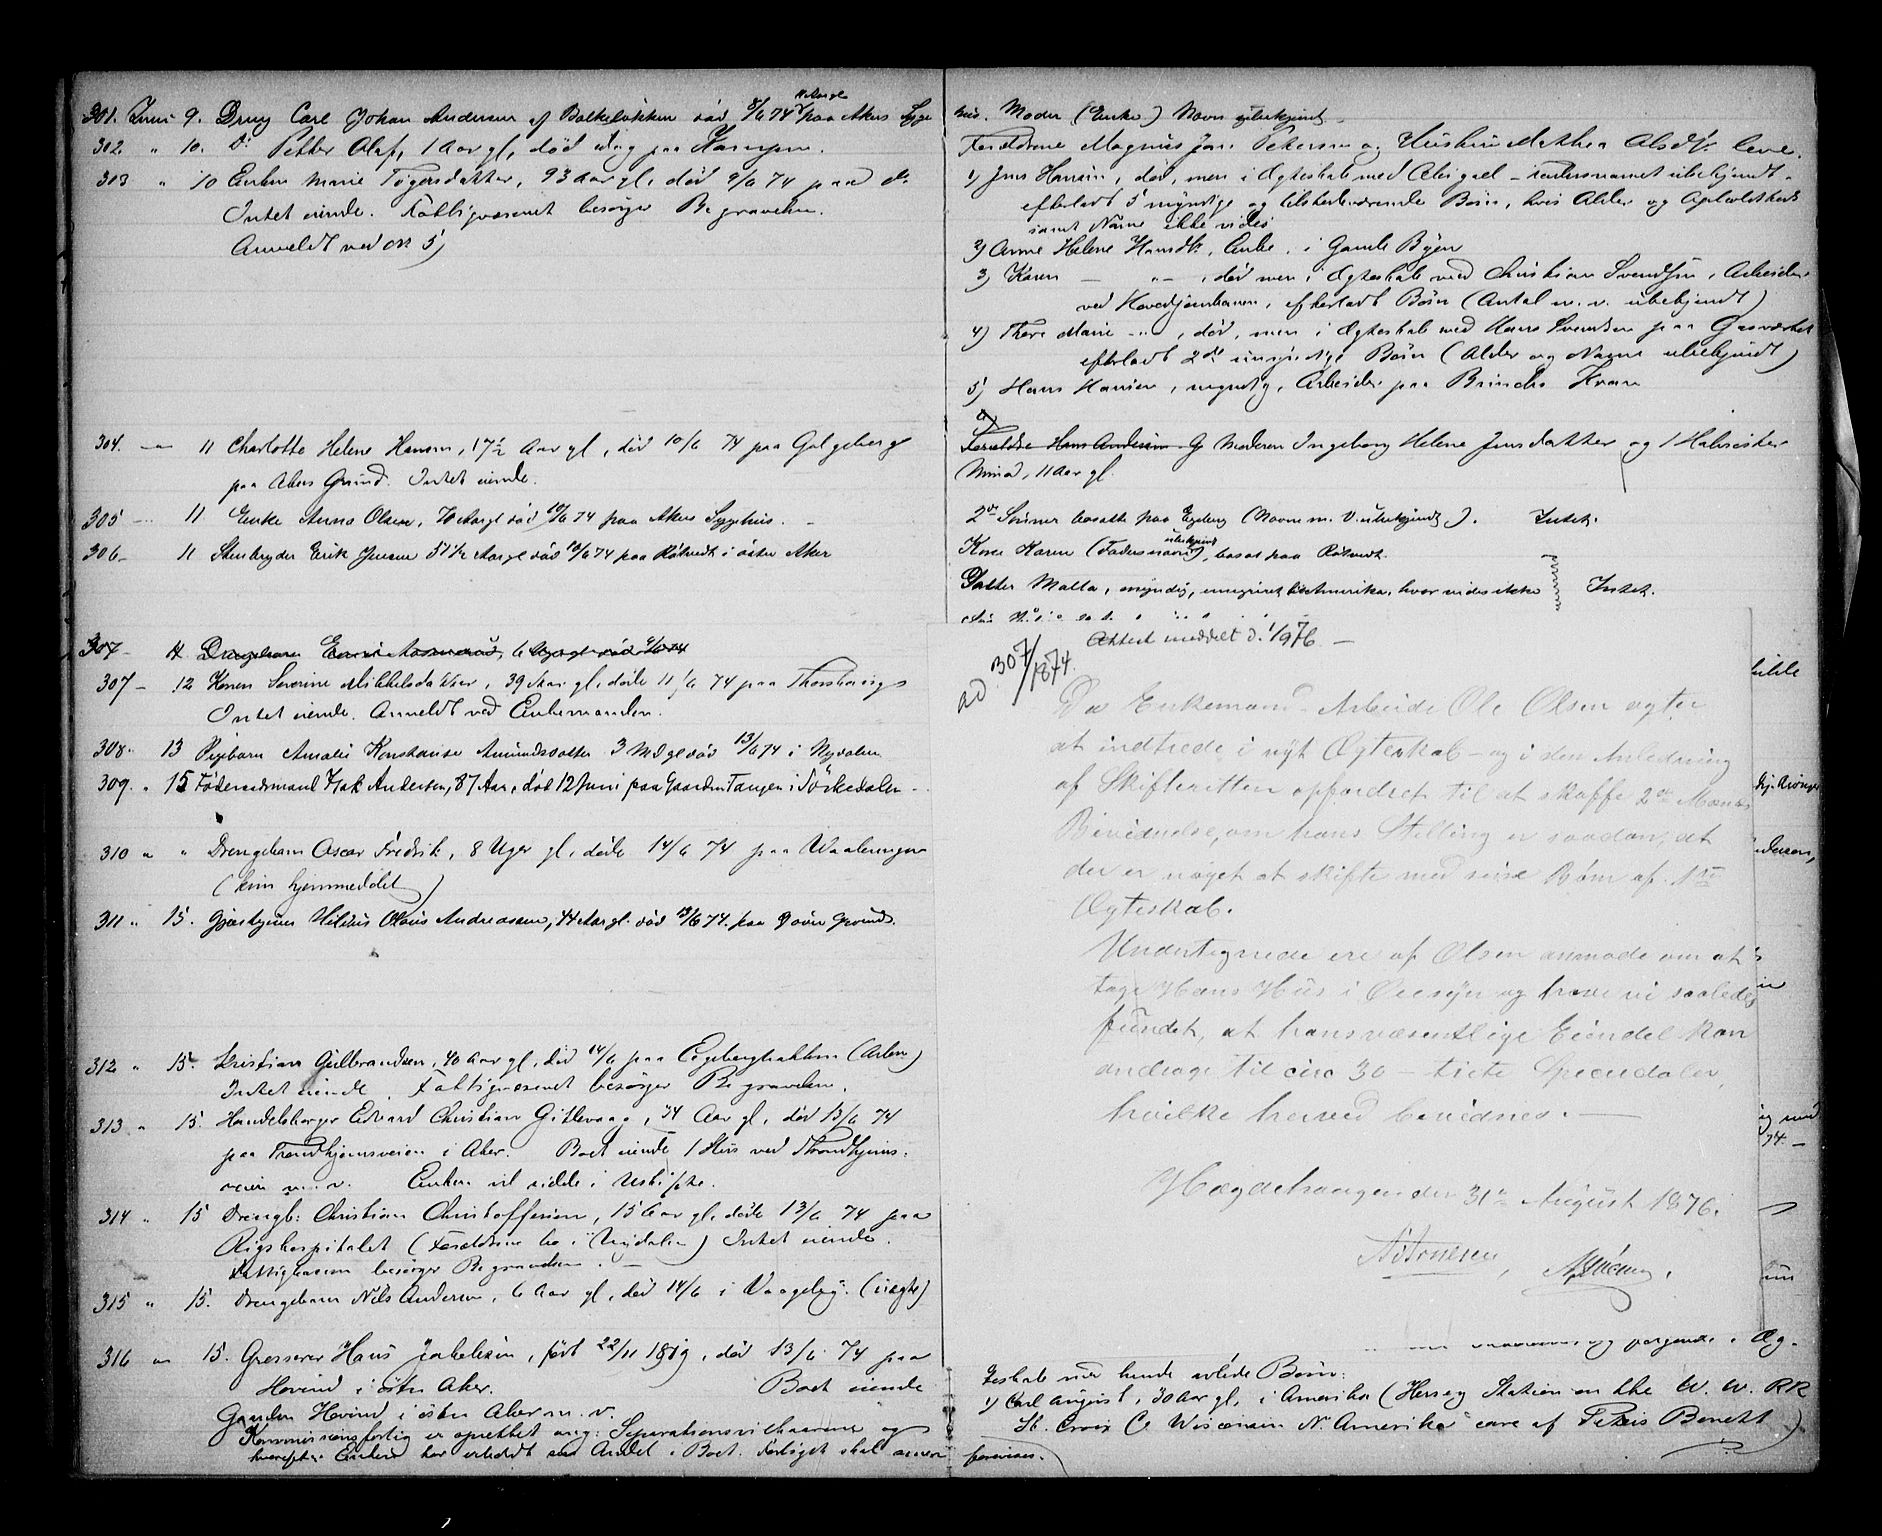 301. Juni 9. Dreng Carl Johan Andersen af Balkeløkken død 8/6 74 paa Akers Syge
302. " 10. Do Petter Olaf, 1 Aar gl, død idag paa Kampen.
303 " 10 Enken Marie Tøgersdatter, 93 aar gl, død 9/6 74 paa do
Intet eiende. Fattigvæsenet besørger Begravelsen.
Anmeldt ved No 5)
304. " 11 Charlotte Helene Hansen, 17½ Aar gl, død 10/6 74 paa Galgeberg
paa Akers Grund. Intet eiende.
305 " 11 Enke Anne Olsen, 70 Aar gl død 10/6 74 paa Akers Sygehus.
306 - 11 Stenbryder Erik Jensen 51½ Aar gl død 10/6 74 paa i østre Aker
307 -
307 - 12 Konen Severine Mikkelsdatter, 39 Aar gl, døde 11/6 74 paa Thorshaug
Intet eiende. Anmeldt ved Enkemanden.
308 - 13 Pigebarn Amalie Konstanse Amundsdatter 3 Md gl død 13/6 74 i Nydalen
309. " 15 Føderaadsmand Isak Andersen, 87 Aar, død 12 Juni paa Gaarden Tangen i Sørkedalen
310 " " Drengebarn Oscar Fredrik, 8 Uger gl, døde 14/6 74 paa Vaalerengen
(kun hjemmedøbt)
311 " 15. Olaus Andreassen, 44 Aar gl. død 13/6 74. paa Grund.
312 " 15. Kristian Gulbrandsen, 40 aar gl, død 14/6 paa Egebergbakken (Arbm)
Intet eiende. Fattigvæsenet besørger Begravelsen.
313 " 15. Handelsborger Edvard Christian Gitlevaag, 34 Aar gl, død 13/6 74
paa Trondhjemsveien i Aker. Boet eiende 1 Hus ved Throndhjems-
veien m. v. Enken vil sidde i Uskifte.
314 " 15 Drengb: Christian Christoffersen, 15 Aar gl, døde 13/6 74 paa
Rigshospitalet (Forældrene bo i Nydalen) Intet eiende.
Fattigkassen besørger Begravelsen.
315 " 15. Drengebarn Nils Andersen, 6 Aar gl, død 14/6 i (uægte)
316 " 15. Grosserer Hans Jakobsen, født 22/11 1819, død 13/6 74 paa
Hovind i østre Aker. Boet eiende
Gaarden Hovind i østre Aker m. v.
Kommissionsforlig er oprettet ang: Separationsvilkaarene og
hvorefter Enken har erholdt sin Andel i Boet. Forliget skal
hus. Moder (Enke) Navn ubekjendt.
Forældrene Magnus Petersen og Hustru Mathea Olsdtr leve.
1) Jens Hansen, død, men i Ægteskab med Abigael - Fadersnavnet ubekjendt -
efterladt 5 myndige og tilstedeværende Børn, hvis Alder og Opholdsted
samt Navne ikke vides
2) Anne Helene Hansdtr, Enke, i Gamle Byen
3) Karen - " - , død men i Ægteskab med Christian Svendsen, Arbeider
ved Hovedjernbanen, efterladt Børn (Antal m. v. ubekjendt)
4) Thore Marie - " , død, men i Ægteskab med Hans Svendsen paa Gasværket
efterladt 2de umyndige Børn (Alder og Navne ubekjendt)
5) Hans Hansen, myndig, Arbeider paa Brinchs Kran
Forældre Hans Andersen og Moderen Ingeborg Helene Jensdatter og 1 Halvsøster
11 Aar gl.
2de Sønner bosatte paa Egeberg (Navne m. v. ubekjendt). Intet.
Kone Karen (Fadersnavn ubekjendt), bosat paa
Datter Malla, myndig, emigreret til Amerika, hvor vides ikke Intet.
Attest meddelt d. 1/9 76 -
ad 307/1874.
Da Enkemand Arbeider Ole Olsen agter
at indtrede i nyt Ægteskab - og i den Anledning
af Skifteretten opfordret til at skaffe 2de Mænds
Bevidnelse, om hans Stelling er saadan, at
der er noget at skifte med sine Børn af 1ste
Ægteskab.
Undertegnede ere af Olsen anmode om at
tage Hans Hus i Øiesyn og have vi saaledes
fundet, at hans væsentlige Eiendel kan
andrage til circ 30 - tirte Speciedaler,
hvilke herved bevidnes. -
Hægdehaugen den 31te August 1876.
og følgende i Æg-
teskab med hende avlede Børn:
1) Carl August, 30 aar gl, i Amerika (Hersey Station on the W. W. RR
St. Croix Co Wisconsin N. Amerika care of Bonett)
forevises.